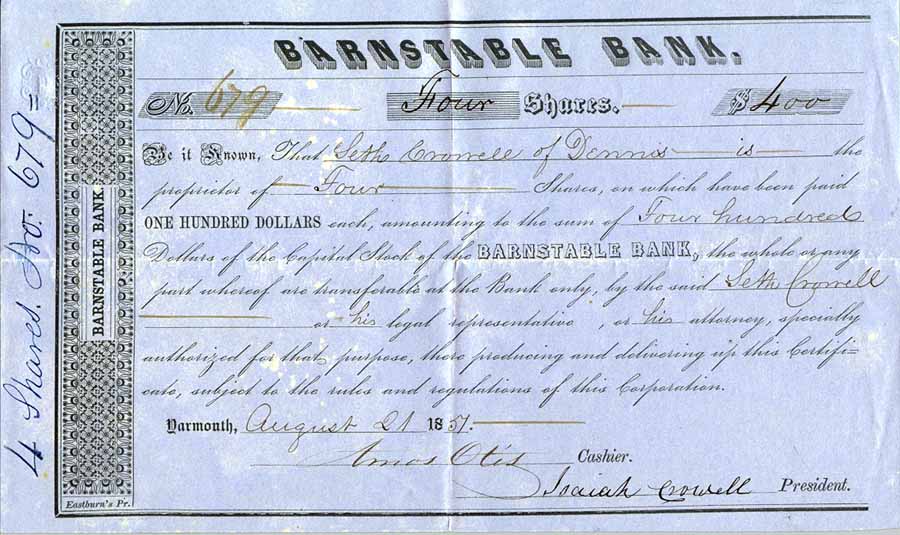 BARNSTABLE BANK.
No. 679 Four Shares. $400
Be it Known, That Seth Crowell of Dennis is the
proprietor of Four Shares, on which have been paid
ONE HUNDRED DOLLARS each, amounting to the sum of Four hundred
Dollars of the Capital Stock of the BARNSTABLE BANK, the whole or any
part whereof are transferable at the Bank only, by the said Seth Crowell
or his legal representative, or his attorney, specially
authorized for that purpose, there producing and delivering up this Certifi-
cate, subject to the rules and regulations of this Corporation.
Yarmouth, August 21 1851.
Amos Otis Cashier.
Isaiah Crowell President.
BARNSTABLE BANK.
Eastburn's Pr.
4 Shares. No. 679=